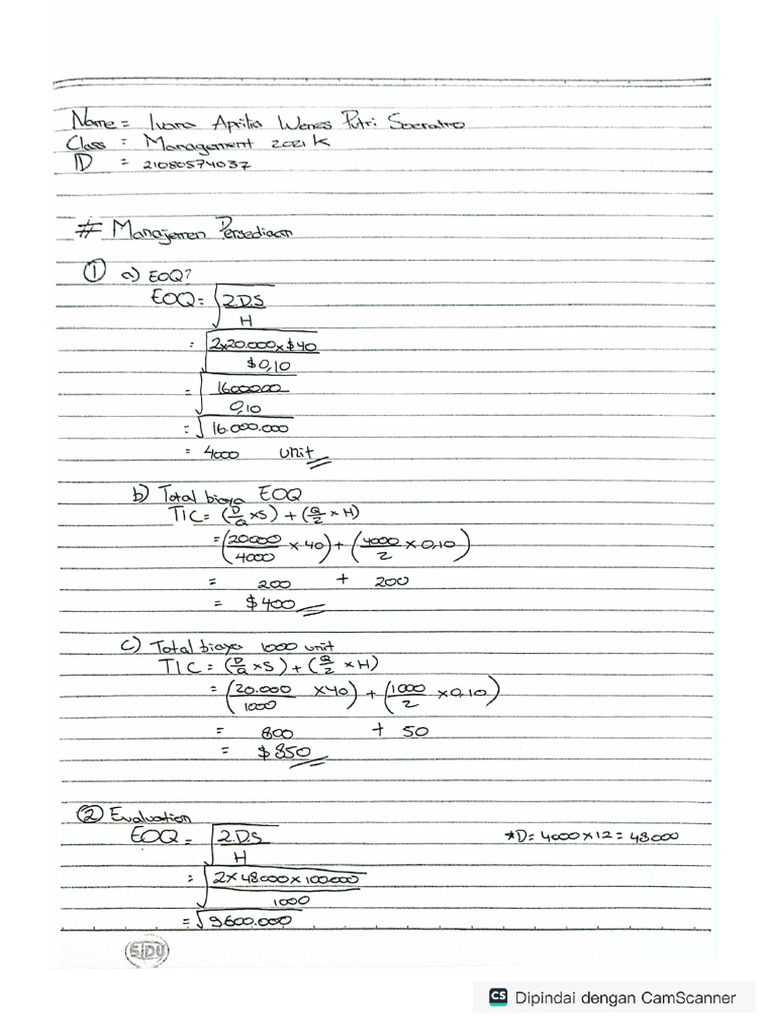 Name = Ivana Aprilia Wenes Putri Soeratno
Class = Management 2021 K
ID = 21080574037
# Manajemen Persediaan
① a) EOQ?
EOQ = √2.DS
H
= √2x20.000x$40
$0,10
= √1600000
0,10
= √16.000.000
= 4000 unit
b) Total biaya EOQ
TIC = (D/Q x S) + (Q/2 x H)
= (20000/4000 x 40) + (4000/2 x 0,10)
= 200 + 200
= $400
c) Total biaya 1000 unit
TIC = (D/Q x S) + (Q/2 x H)
= (20.000/1000 x 40) + (1000/2 x 0.10)
= 800 + 50
= $850
② Evaluation
EOQ = √2.D.S *D = 4000 x 12 = 48000
H
= √2 x 48000 x 100.000
1000
= √9600.000
SIDU
CS Dipindai dengan CamScanner